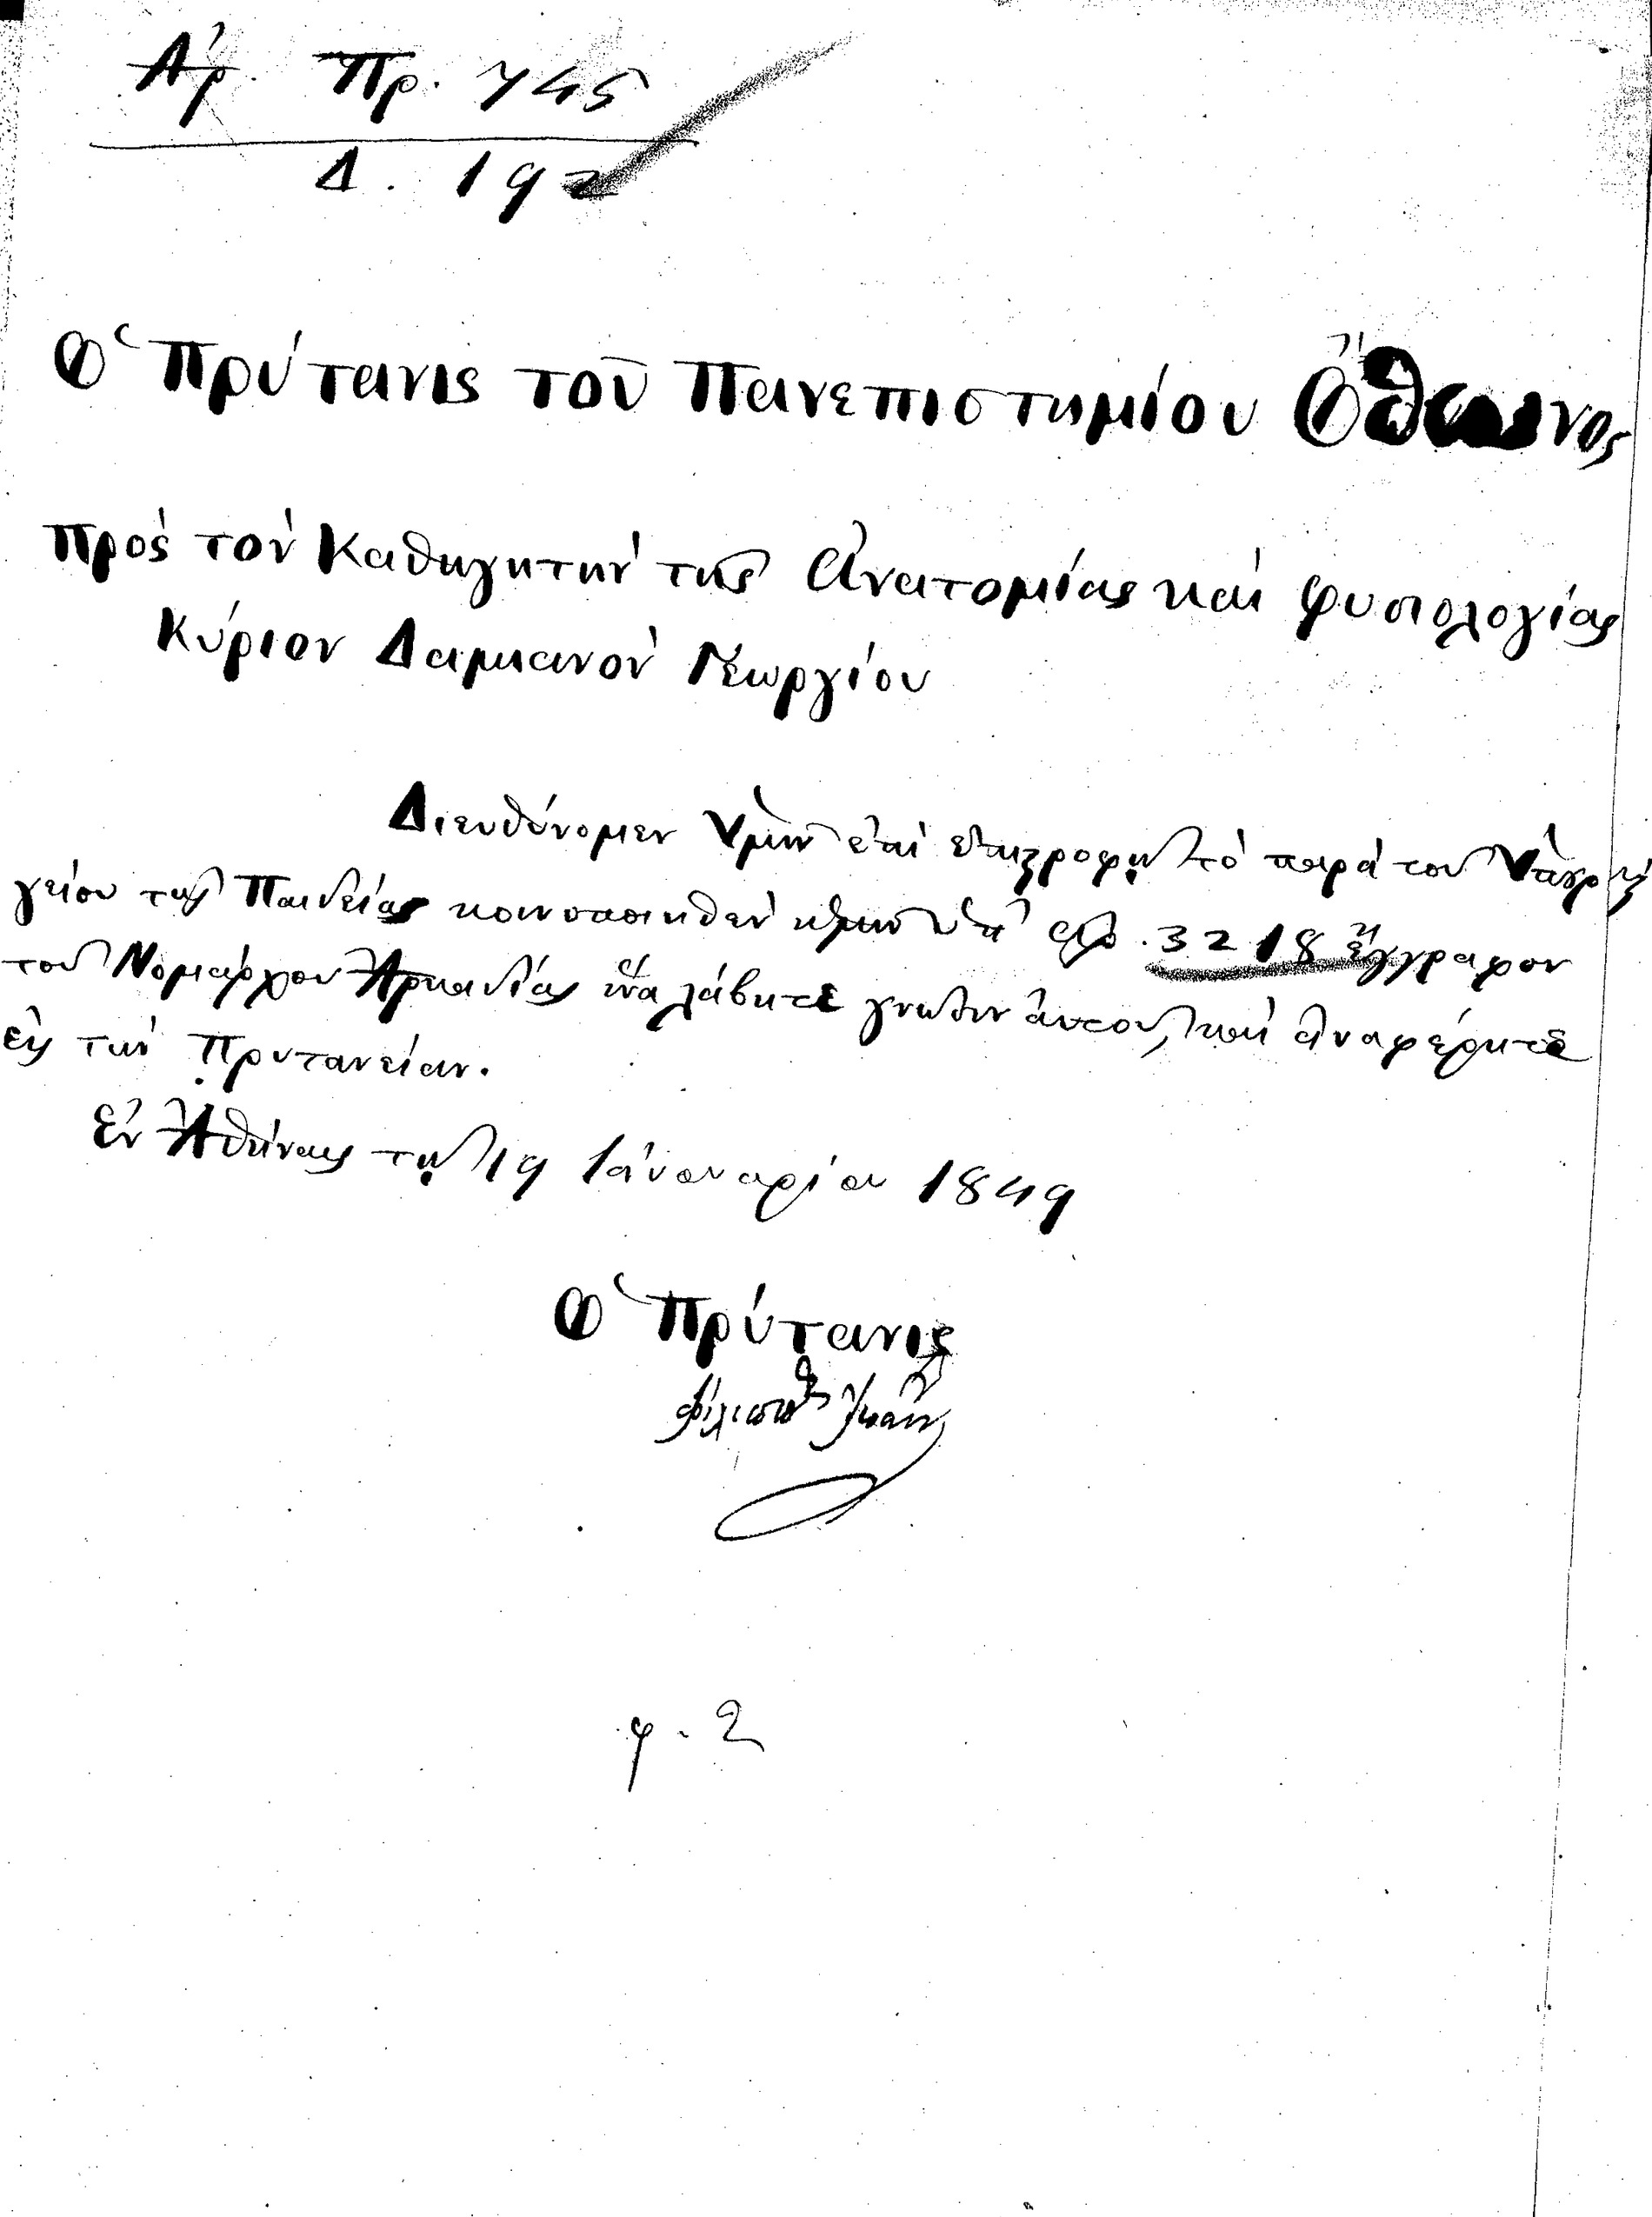 Ἀρ. Πρ. 745
Δ. 192
Ὁ Πρύτανις τοῦ Πανεπιστημίου Ὄθωνος
Πρὸς τὸν Καθηγητὴν τῆς Ἀνατομίας καὶ φυσιολογίας
Κύριον Δαμιανὸν Γεωργίου
Διευθύνομεν Ὑμῖν ἐπὶ ἐπιστροφῇ τὸ παρὰ τοῦ Ὑπουρ
γείου τῆς Παιδείας κοινοποιηθὲν ἡμῖν ὑπ' ἀρ. 3218 ἔγγραφον
τοῦ Νομάρχου Ἀρκαδίας ἵνα λάβητε γνῶσιν αὐτοῦ, καὶ ἀναφέρητε
εἰς τὴν Πρυτανείαν.
Ἐν Ἀθήναις τῇ 19 Ἰανουαρίου 1849
Ὁ Πρύτανις
Φίλιππος Ἰωάν
φ. 2